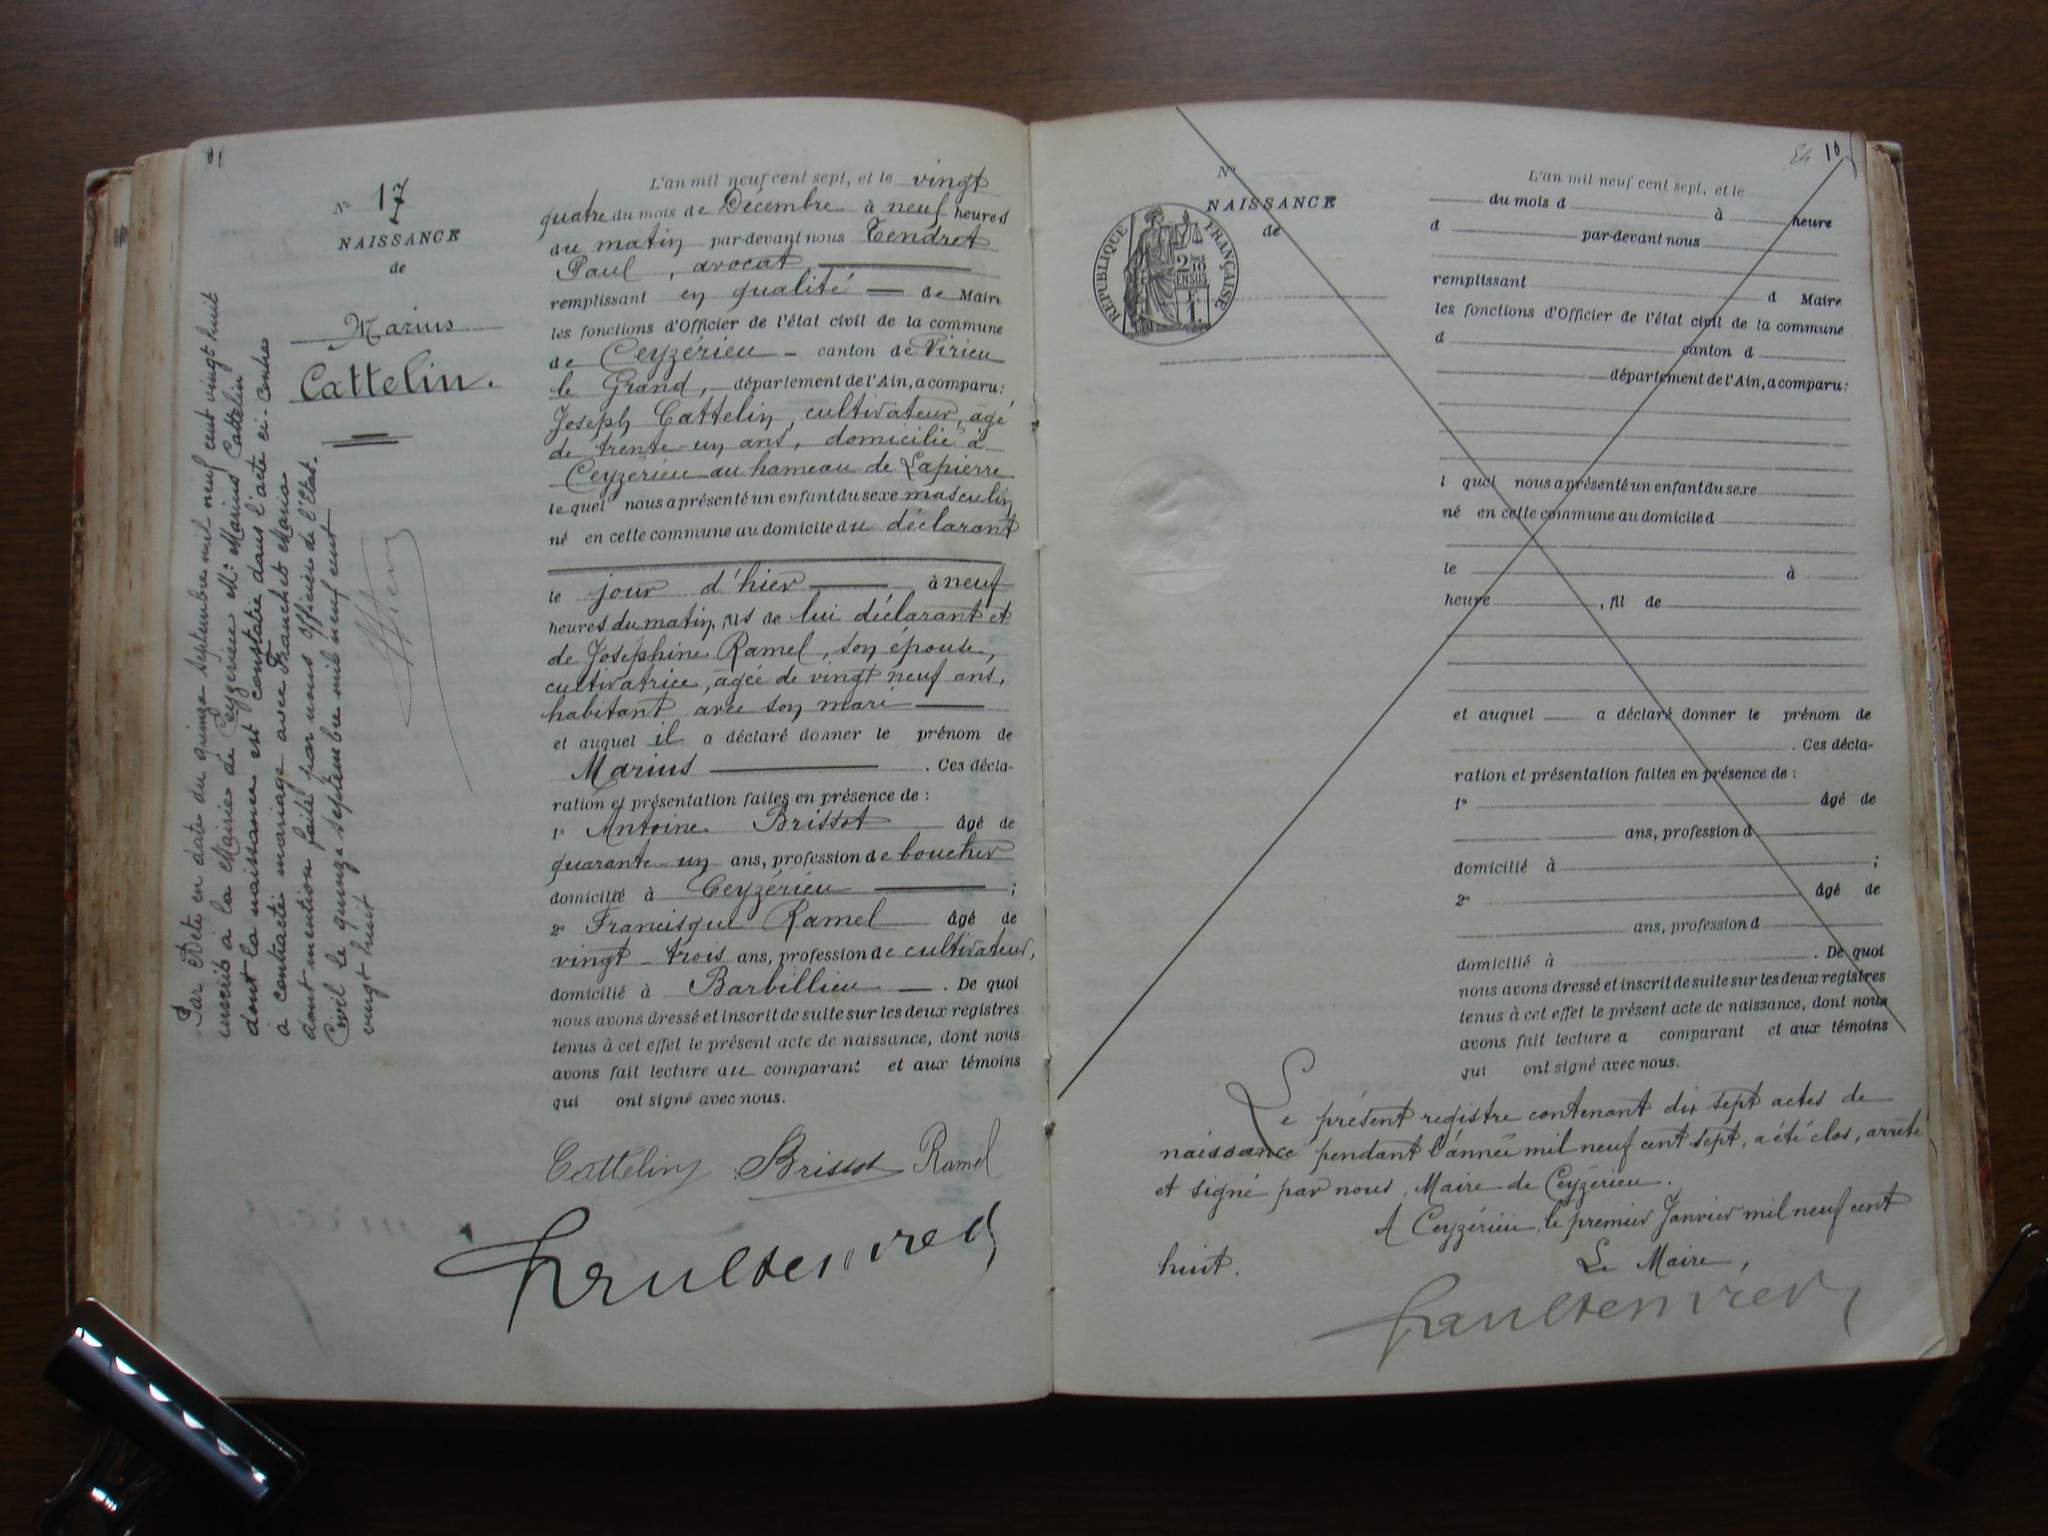 Nº 17
NAISSANCE
de
Marius
Cattelin.
Par Acte en date du quinze septembre mil neuf cent vingt huit
inscrit à la Mairie de Ceyzérieu Mr Marius Cattelin
dont la naissance est constatée dans l'acte ci-contre
a contracté mariage avec Franchet Maria
dont mention faite par nous officier de l'Etat.
Civil le quinze septembre mil neuf cent
vingt huit
L'an mil neuf cent sept, et le vingt
quatre du mois de Décembre à neuf heures
du matin par-devant nous Tendret
Paul, avocat
remplissant en qualité de Maire
les fonctions d'Officier de l'état civil de la commune
de Ceyzérieu - canton de Virieu
le Grand, département de l'Ain, a comparu:
Joseph Cattelin, cultivateur, âgé
de trente-un ans, domicilié à
Ceyzérieu au hameau de Lapierre
lequel nous a présenté un enfant du sexe masculin
né en cette commune au domicile du déclarant
le jour d'hier à neuf
heures du matin, fils de lui déclarant et
de Joséphine Ramel, son épouse,
cultivatrice, âgée de vingt neuf ans,
habitant avec son mari
et auquel il a déclaré donner le prénom de
Marius . Ces décla-
ration et présentation faites en présence de :
1º Antoine Brissot âgé de
quarante-un ans, profession de boucher
domicilié à Ceyzérieu ;
2º Francisque Ramel âgé de
vingt-trois ans, profession de cultivateur,
domicilié à Barbillieu . De quoi
nous avons dressé et inscrit de suite sur les deux registres
tenus à cet effet le présent acte de naissance, dont nous
avons fait lecture au comparant et aux témoins
qui ont signé avec nous.
Cattelin Brissot Ramel
10
Nº
NAISSANCE
de
RÉPUBLIQUE FRANÇAISE
L'an mil neuf cent sept, et le
du mois d à heure
d par-devant nous
remplissant d Maire
les fonctions d'Officier de l'état civil de la commune
d canton d
département de l'Ain, a comparu:
l quel nous a présenté un enfant du sexe
né en cette commune au domicile d
le à
heure , fil de
et auquel a déclaré donner le prénom de
. Ces décla-
ration et présentation faites en présence de :
1º âgé de
ans, profession d
domicilié à ;
2º âgé de
ans, profession d
domicilié à . De quoi
nous avons dressé et inscrit de suite sur les deux registres
tenus à cet effet le présent acte de naissance, dont nous
avons fait lecture a comparant et aux témoins
qui ont signé avec nous.
Le présent registre contenant dix sept actes de
naissance pendant l'année mil neuf cent sept, a été clos, arrêté
et signé par nous, Maire de Ceyzérieu.
A Ceyzérieu, le premier Janvier mil neuf cent
huit.
Le Maire,